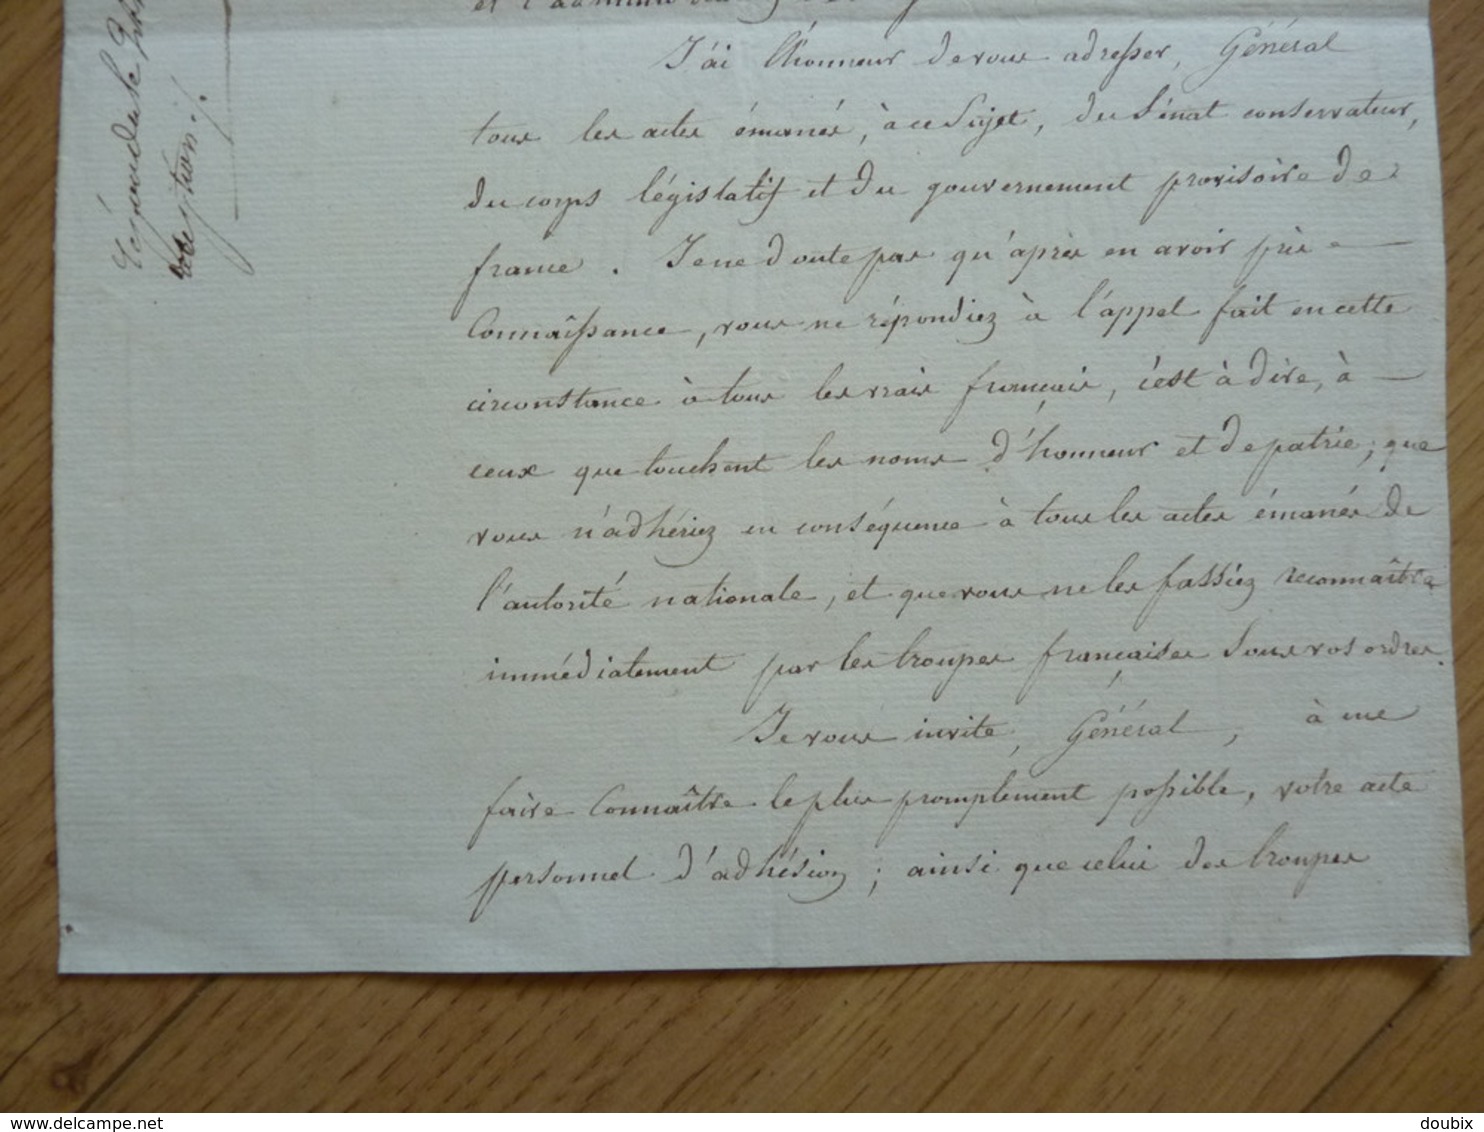 et l'admin
J'ai l'honneur de vous adresser, Général
tous les actes émanés, à ce sujet, du Sénat conservateur,
du corps législatif et du gouvernement provisoire de
france. Je ne doute pas qu'après en avoir pris
Connaissance, vous ne répondiez à l'appel fait en cette
circonstance à tous les vrais français, c'est à dire, à
ceux que touchent les noms d'honneur et de patrie; que
vous n'adhériez en conséquence à tous les actes émanés de
l'autorité nationale, et que vous ne les fassiez reconnaître
immédiatement par les troupes françaises sous vos ordres.
Je vous invite, Général, à me
faire Connaître le plus promptement possible, votre acte
personnel d'adhésion; ainsi que celui des troupes
répondu le
delcampe.net
doubix